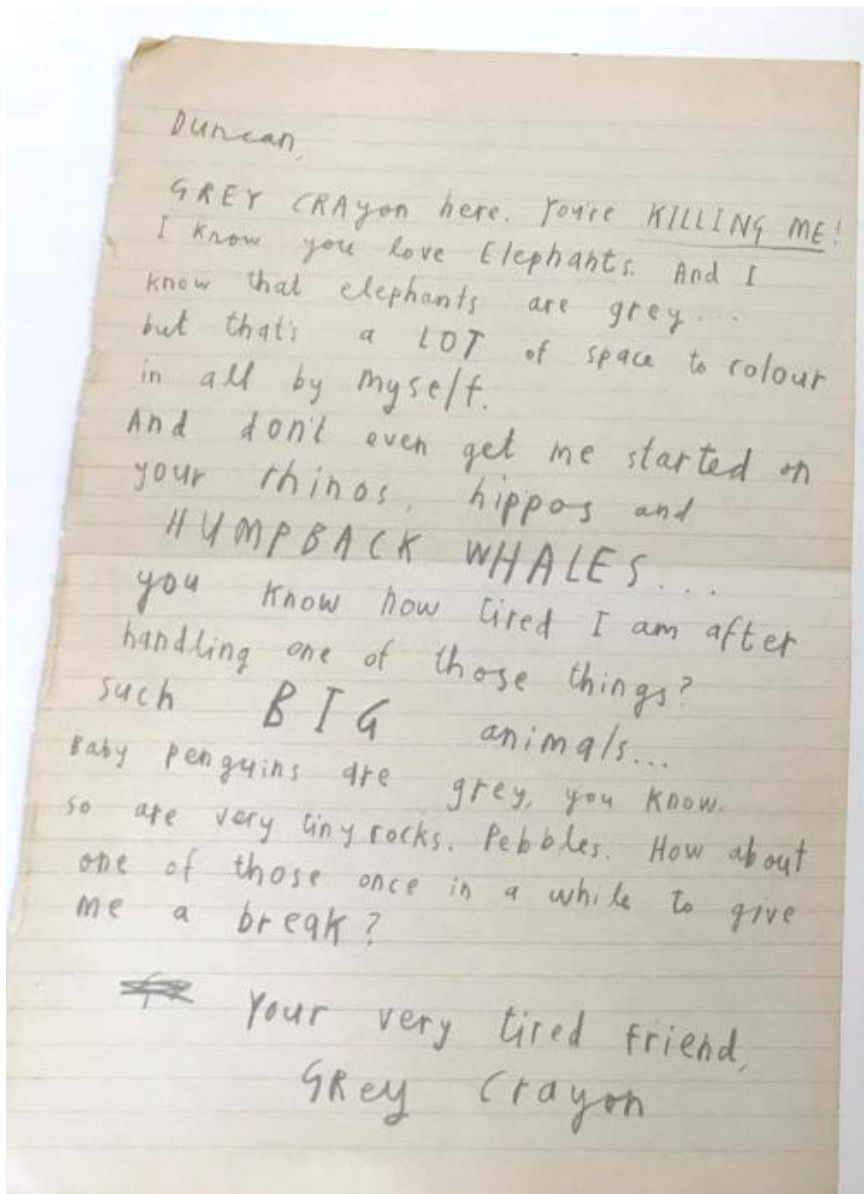 Duncan,
GREY CRAyon here. You're KILLING ME!
I know you love Elephants. And I
know that elephants are grey...
but that's a LOT of space to colour
in all by myself.
And don't even get me started on
your rhinos, hippos and
HUMPBACK WHALES...
you know how tired I am after
handling one of those things?
such BIG animals...
Baby penguins are grey, you know.
so are very tiny rocks. Pebbles. How about
one of those once in a while to give
me a break?
Your very tired friend,
GRey Crayon